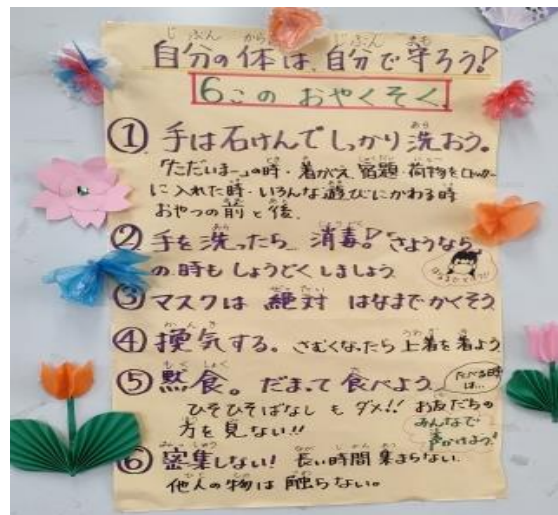 自分の体は、自分で守ろう!
6この おやくそく
① 手は石けんでしっかり洗おう。
「ただいまー」の時・着がえ、宿題・荷物をロッカー
に入れた時・いろんな遊びにかわる時
おやつの前と後。
② 手を洗ったら 消毒!さようなら
の時も しょうどくしましょう
③ マスクは 絶対 はなまでかくそう
④ 換気する。さむくなったら 上着を着よう
⑤ 黙食。だまって食べよう
たべる時は…
ひそひそばなしもダメ!! お友だちの
方を見ない!!
みんなで
声かけよう!
⑥ 密集しない! 長い時間 集まらない
他人の物は 触らない。